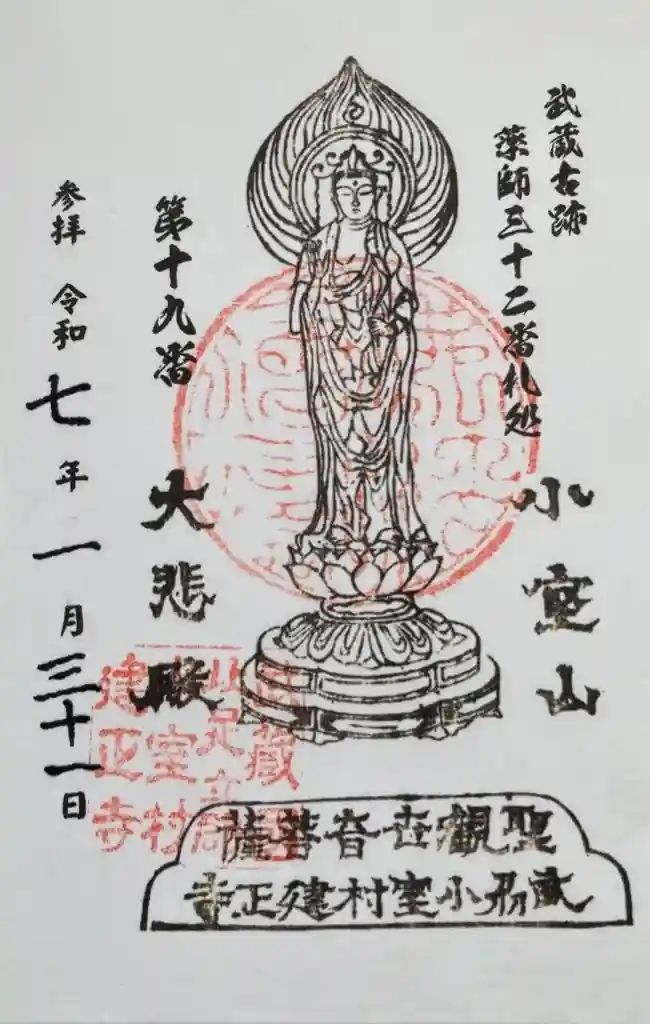 武蔵古跡
薬師三十二番札処
小室山
第十九番
大悲殿
参拝 令和七年一月三十一日
聖観世音菩薩
武州小室村建正寺
武蔵国
北足立郡
小室村
建正寺